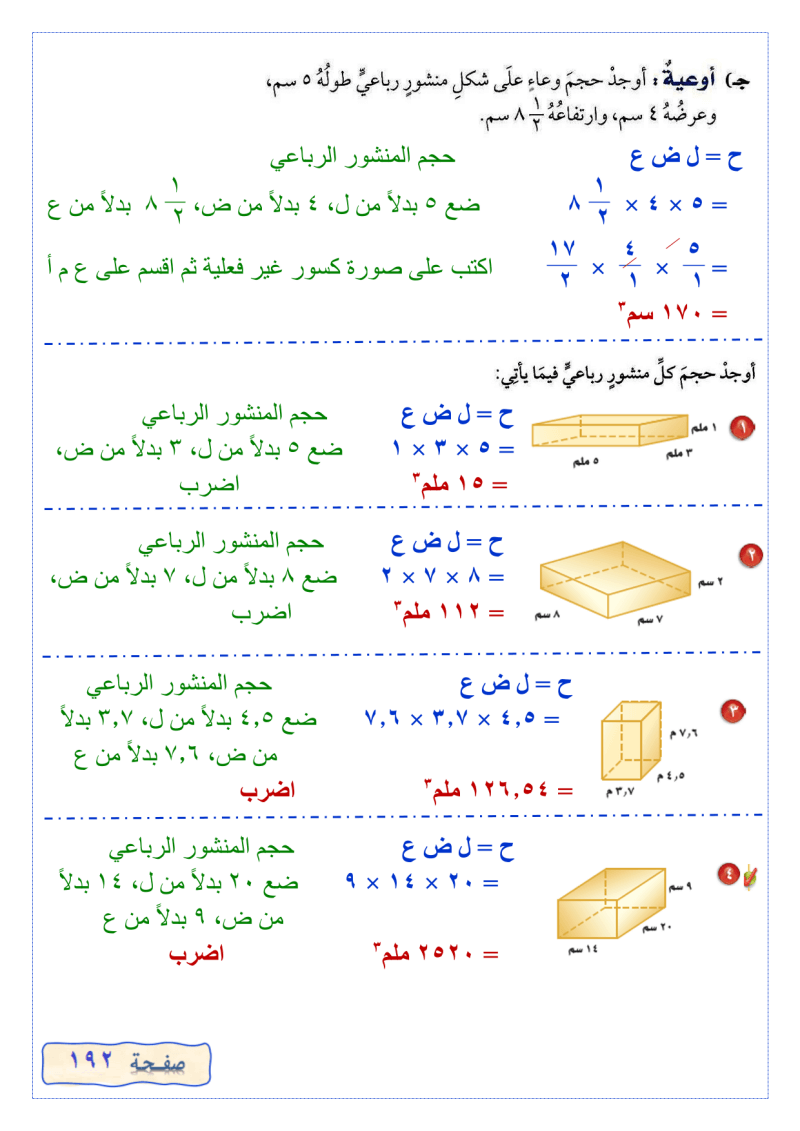 جـ) أوعيةٌ: أوجدْ حجمَ وعاءٍ علَى شكلِ منشورٍ رباعيٍّ طولُهُ ٥ سم،
وعرضُهُ ٤ سم، وارتفاعُهُ ٨ ١/٢ سم.
ح = ل ض ع حجم المنشور الرباعي
= ٥ × ٤ × ٨ ١/٢ ضع ٥ بدلاً من ل، ٤ بدلاً من ض، ٨ ١/٢ بدلاً من ع
= ٥/١ × ٤/١ × ١٧/٢ اكتب على صورة كسور غير فعلية ثم اقسم على ع م أ
= ١٧٠ سم٣
أوجدْ حجمَ كلِّ منشورٍ رباعيٍّ فيمَا يأتِي:
١
١ ملم
٣ ملم
٥ ملم
ح = ل ض ع حجم المنشور الرباعي
= ٥ × ٣ × ١ ضع ٥ بدلاً من ل، ٣ بدلاً من ض،
= ١٥ ملم٣ اضرب
٢
٢ سم
٧ سم
٨ سم
ح = ل ض ع حجم المنشور الرباعي
= ٨ × ٧ × ٢ ضع ٨ بدلاً من ل، ٧ بدلاً من ض،
= ١١٢ ملم٣ اضرب
٣
٧,٦ م
٤,٥ م
٣,٧ م
ح = ل ض ع حجم المنشور الرباعي
= ٤,٥ × ٣,٧ × ٧,٦ ضع ٤,٥ بدلاً من ل، ٣,٧ بدلاً
من ض، ٧,٦ بدلاً من ع
= ١٢٦,٥٤ ملم٣ اضرب
٤
٩ سم
٢٠ سم
١٤ سم
ح = ل ض ع حجم المنشور الرباعي
= ٢٠ × ١٤ × ٩ ضع ٢٠ بدلاً من ل، ١٤ بدلاً
من ض، ٩ بدلاً من ع
= ٢٥٢٠ ملم٣ اضرب
صفحة ١٩٢